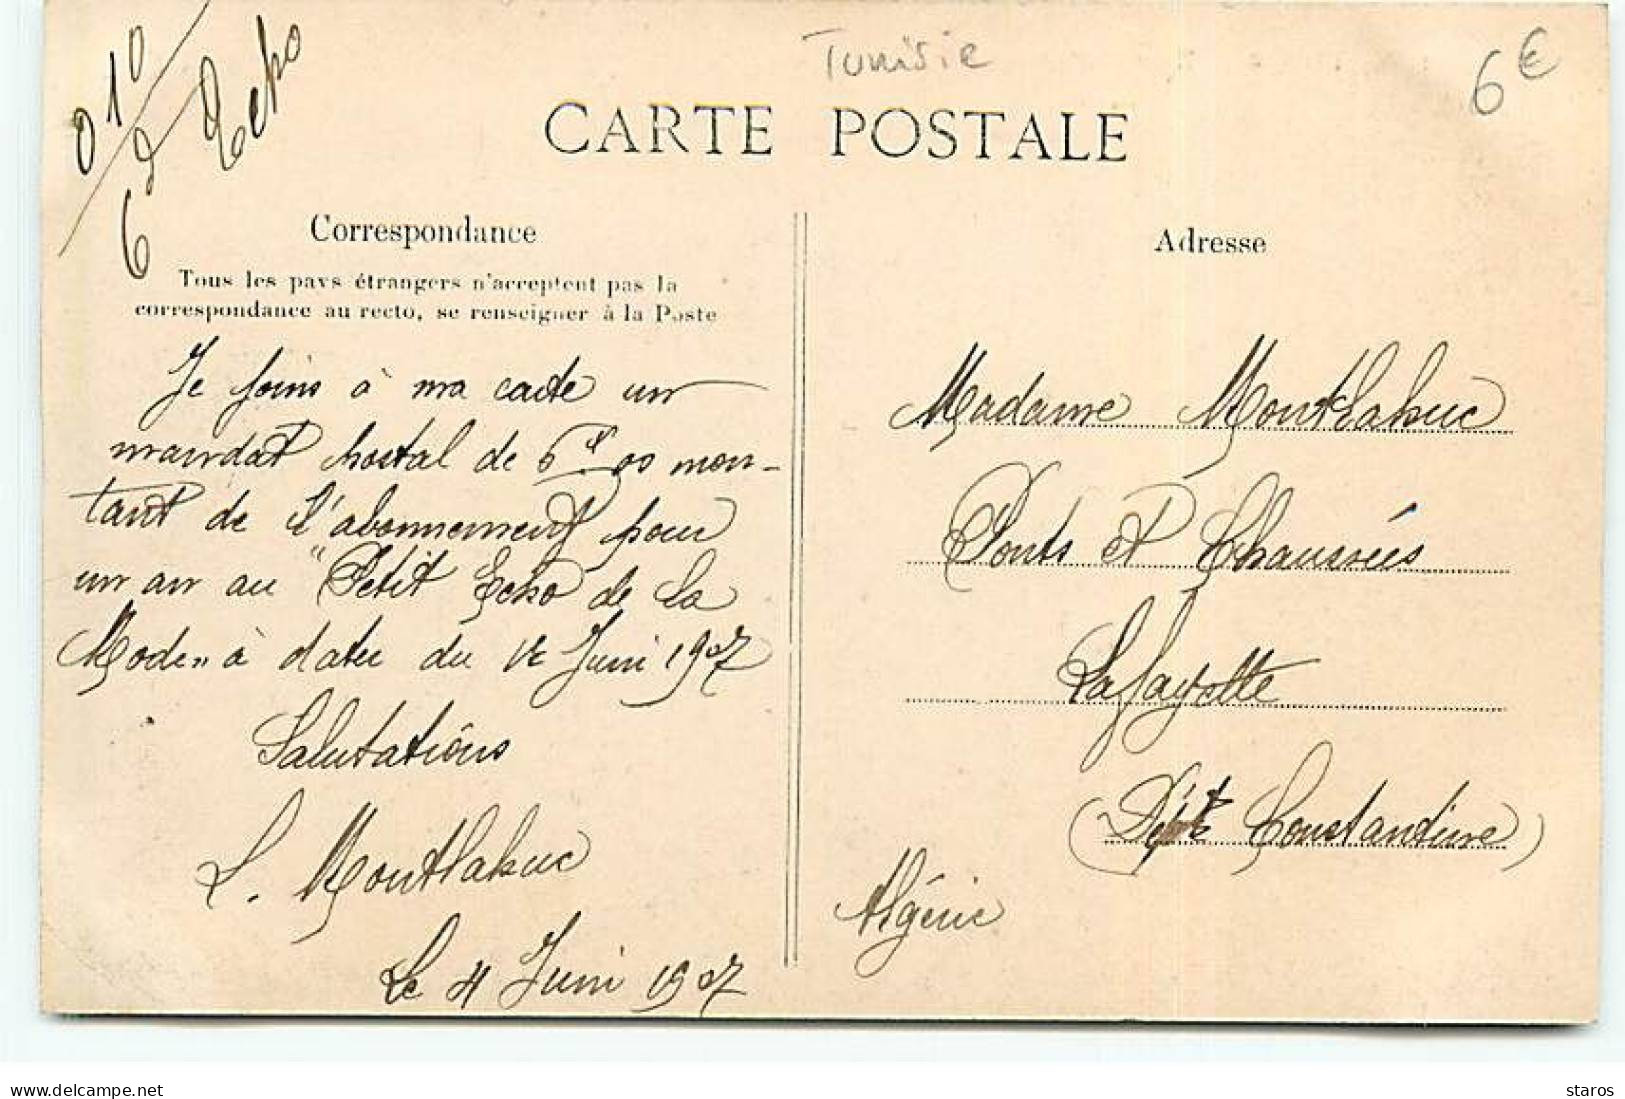 010
6 d
Ecko
Tunisie
6€
CARTE POSTALE
Correspondance
Adresse
Tous les pays étrangers n'acceptent pas la
correspondance au recto, se renseigner à la Poste
Je joins à ma carte un
mandat postal de 6f 00 mon-
tant de l'abonnement pour
un an au "Petit Echo de la
Mode" à dater du 1e Juin 1907
Salutations
L. Montlahuc
Le 4 Juin 1907
Madame Montlahuc
Ponts et Chaussées
Lafayette
(Dépt Constantine)
Algérie
www.delcampe.net
staros